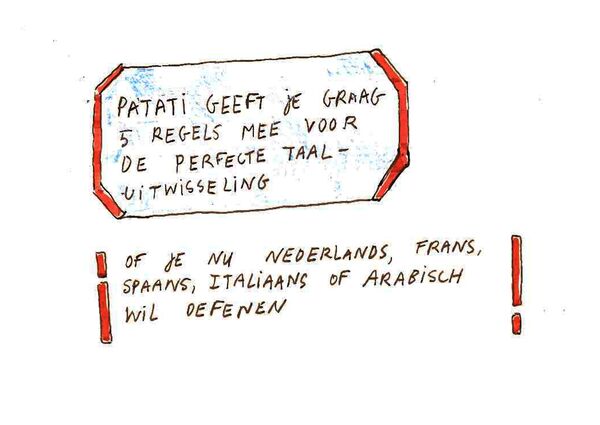 PATATI GEEFT JE GRAAG
5 REGELS MEE VOOR
DE PERFECTE TAAL-
UITWISSELING
OF JE NU NEDERLANDS, FRANS,
SPAANS, ITALIAANS OF ARABISCH
WIL OEFENEN